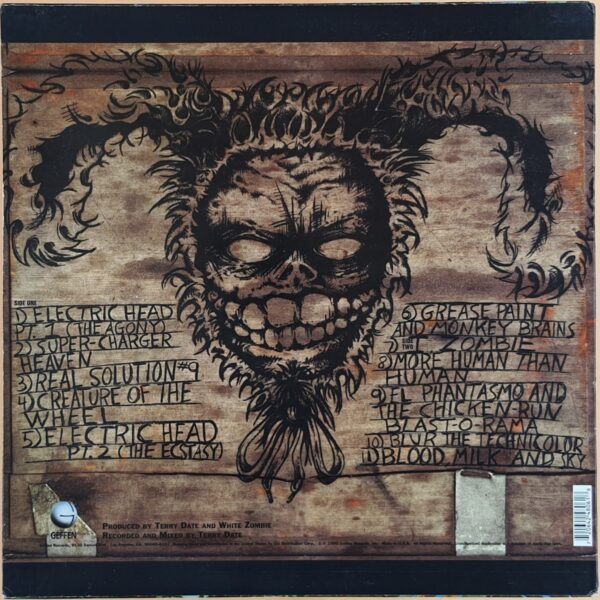 SIDE ONE
1) ELECTRIC HEAD
PT. 1 (THE AGONY)
2) SUPER-CHARGER
HEAVEN
3) REAL SOLUTION #9
4) CREATURE OF THE
WHEEL
5) ELECTRIC HEAD
PT. 2 (THE ECSTASY)
6) GREASE PAINT
AND MONKEY BRAINS
SIDE TWO
7) I, ZOMBIE
8) MORE HUMAN THAN
HUMAN
9) EL PHANTASMO AND
THE CHICKEN-RUN
BLAST-O-RAMA
10) BLUR THE TECHNICOLOR
11) BLOOD MILK AND SKY
GEFFEN
PRODUCED BY TERRY DATE AND WHITE ZOMBIE
RECORDED AND MIXED BY TERRY DATE